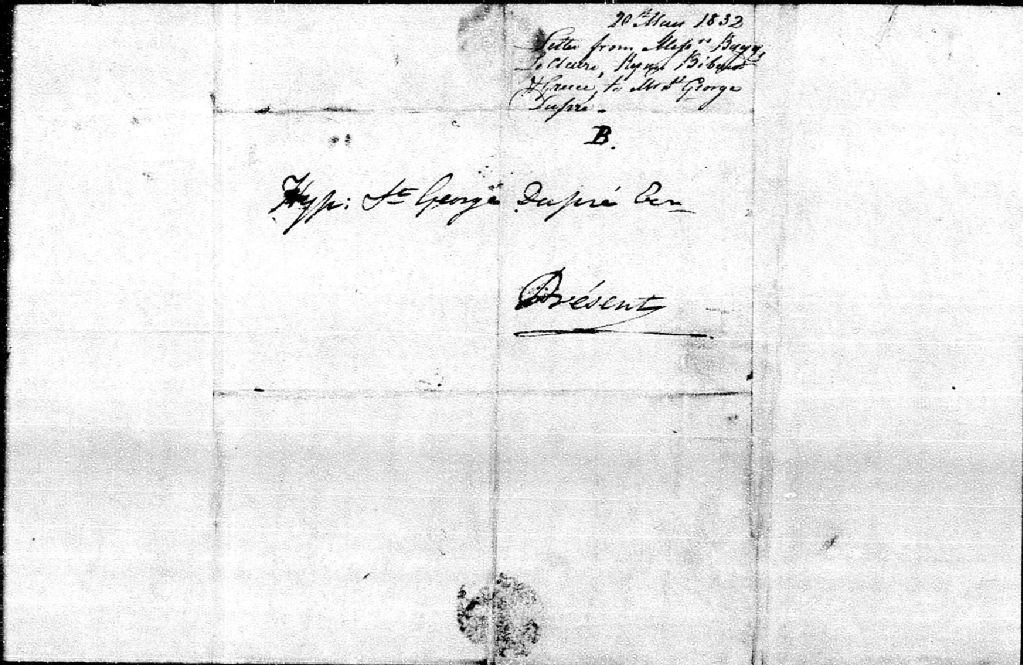 20th May 1832
Letter from Messrs Bagg,
Leclaire, Ryan, Bibaud
& Grece, to Mr St George
Dupré -
B.
Hyp: St George Dupré Ecr
Présent